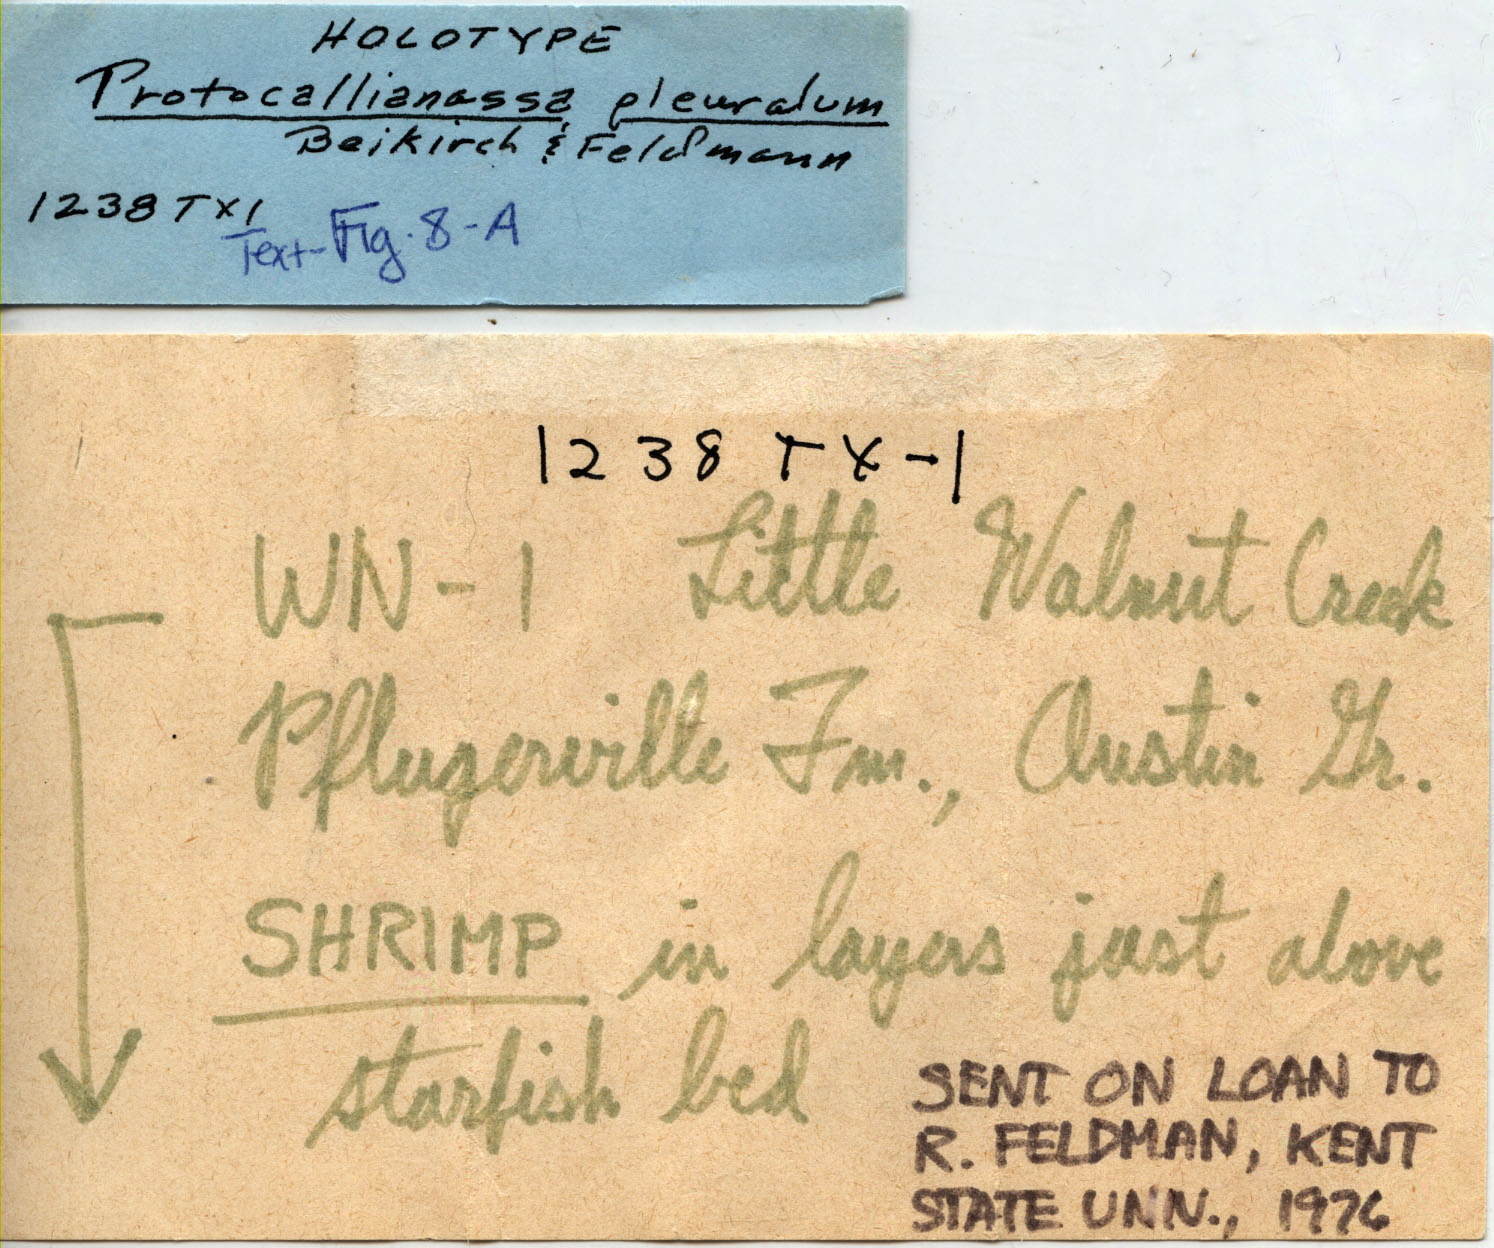 HOLOTYPE
Protocallianassa pleuralum
Beikirch & Feldmann
1238 TX1
Text-Fig. 8-A
1238 TX-1
WN-1 Little Walnut Creek
Pflugerville Fm., Austin Gr.
SHRIMP in layers just above
starfish bed
SENT ON LOAN TO
R. FELDMAN, KENT
STATE UNIV., 1976